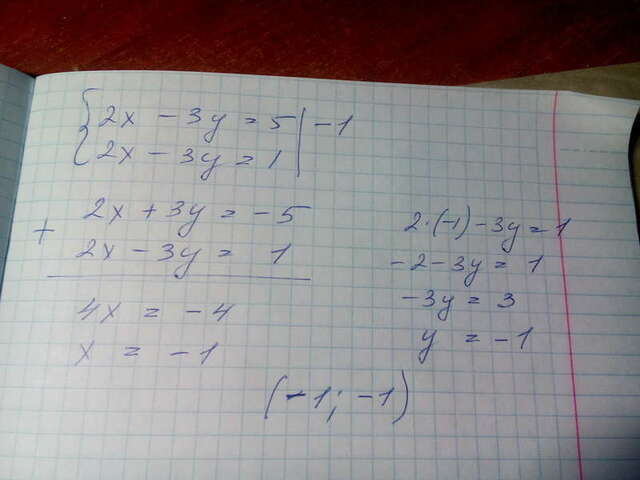 {2x - 3y = 5 | -1
2x - 3y = 1
+ 2x + 3y = -5
2x - 3y = 1
4x = -4
x = -1
2·(-1) - 3y = 1
-2 - 3y = 1
-3y = 3
y = -1
(-1; -1)